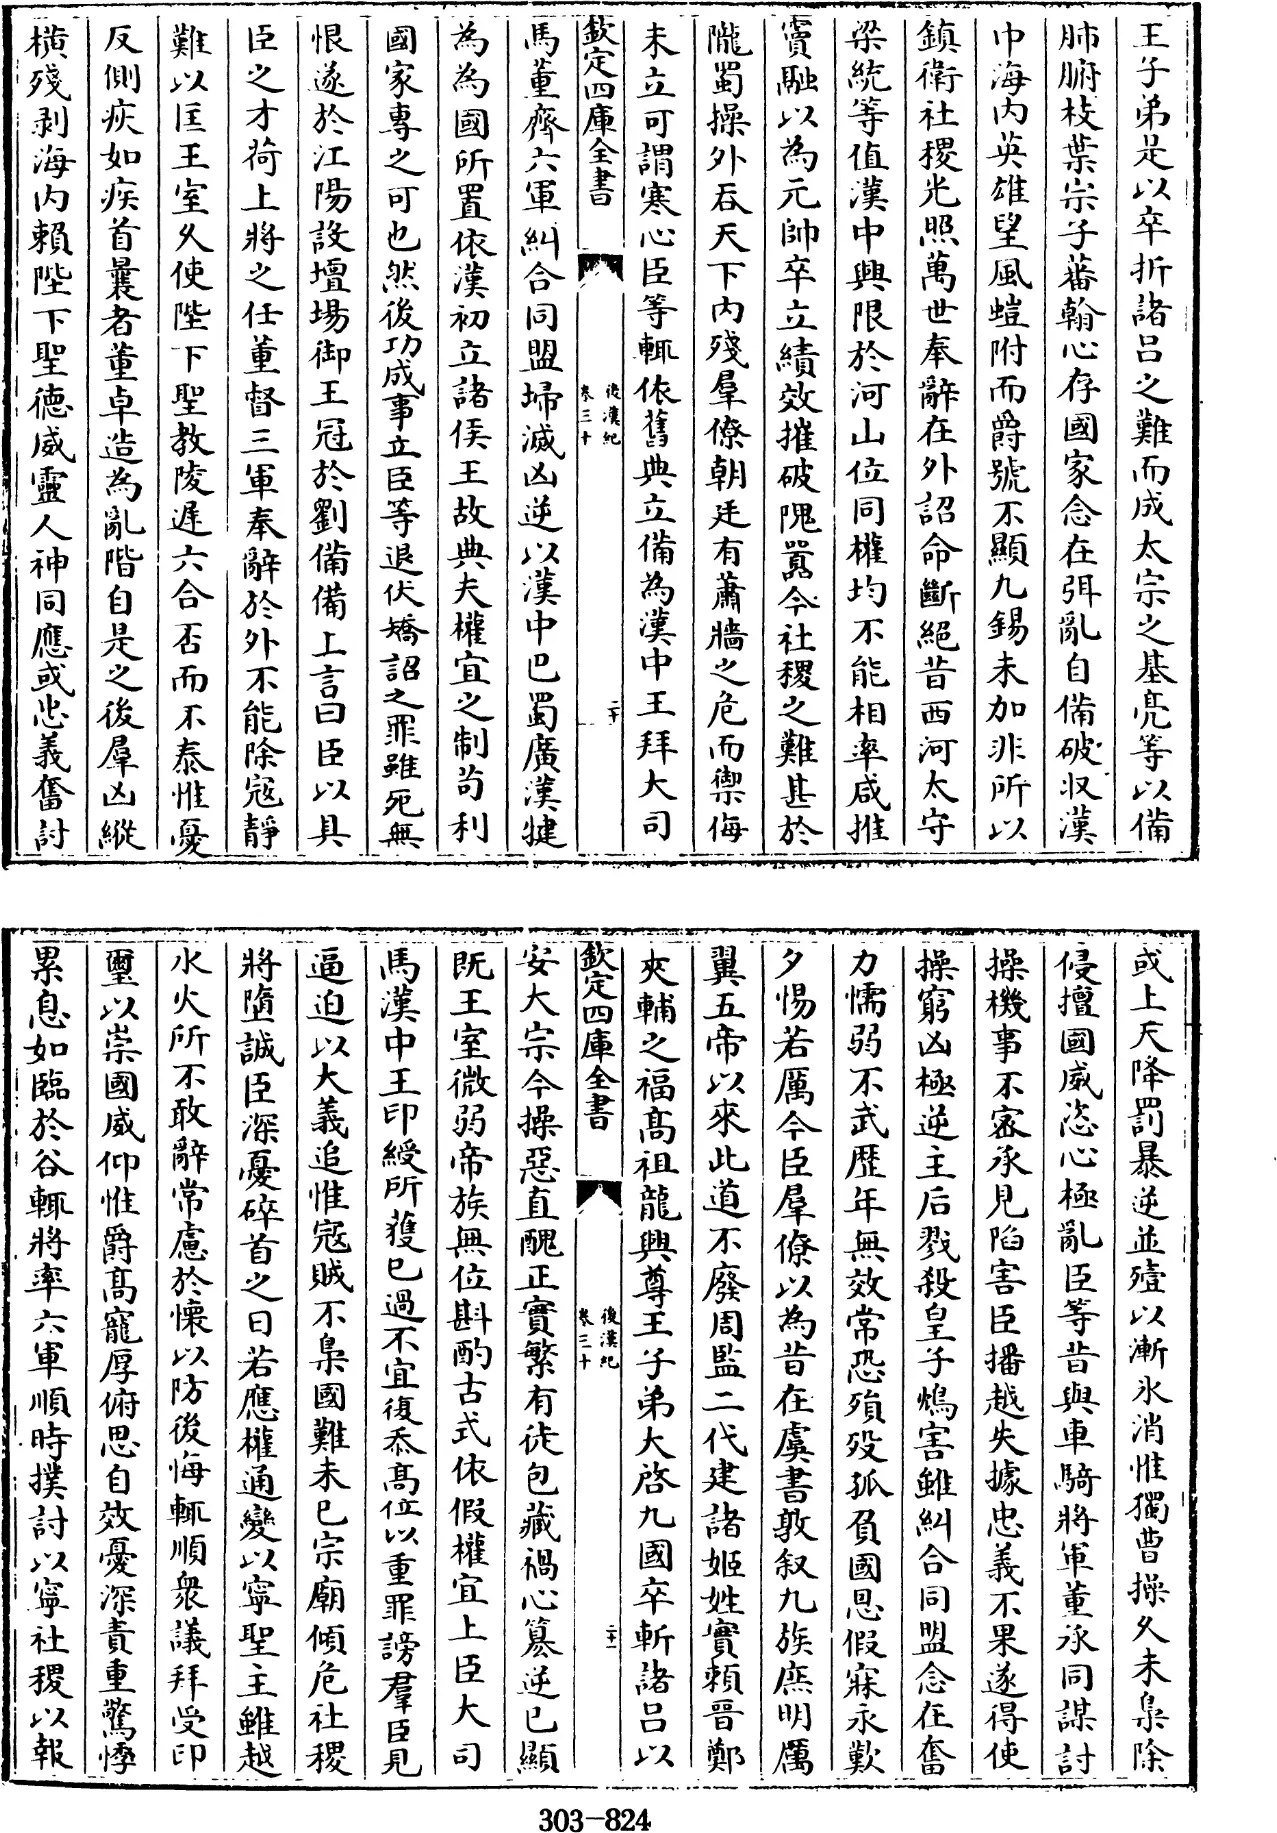 王子弟是以卒折諸呂之難而成太宗之基亮等以備
肺腑枝葉宗子蕃翰心存國家念在弭亂自備破収漢
中海内英雄望風螘附而爵號不顯九錫未加非所以
鎮衛社稷光照萬世奉辭在外詔命斷絕昔西河太守
梁統等值漢中興限於河山位同權均不能相率咸推
竇融以為元帥卒立績效摧破隗嚣今社稷之難甚於
隴蜀操外吞天下内殘羣僚朝廷有蕭牆之危而禦侮
未立可謂寒心臣等輒依舊典立備為漢中王拜大司
欽定四庫全書
後漢紀
卷三十
二十
馬董齊六軍糾合同盟埽滅凶逆以漢中巴蜀廣漢犍
為為國所置依漢初立諸侯王故典夫權宜之制苟利
國家專之可也然後功成事立臣等退伏矯詔之罪雖死無
恨遂於江陽設壇場御王冠於劉備備上言曰臣以具
臣之才荷上將之任董督三軍奉辭於外不能除寇靜
難以匡王室乆使陛下聖教陵遲六合否而不泰惟憂
反側疢如疾首曩者董卓造為亂階自是之後羣凶縱
橫殘剥海内賴陛下聖德威靈人神同應或忠義奮討
或上天降罰暴逆並殪以漸氷消惟獨曹操乆未梟除
侵擅國威恣心極亂臣等昔與車騎將軍董承同謀討
操機事不密承見陷害臣播越失據忠義不果遂得使
操窮凶極逆主后戮殺皇子鴆害雖糾合同盟念在奮
力懦弱不武歷年無效常恐殞殁孤負國恩假寐永歎
夕惕若厲今臣羣僚以為昔在虞書敦叙九族庶明厲
翼五帝以來此道不廢周監二代建諸姬姓實頼晉鄭
夾輔之福髙祖龍興尊王子弟大啓九國卒斬諸呂以
欽定四庫全書
後漢紀
卷三十
二十一
安大宗今操惡直醜正實繁有徒包藏禍心簒逆已顯
既王室微弱帝族無位斟酌古式依假權宜上臣大司
馬漢中王印綬所獲已過不宜復忝髙位以重罪謗羣臣見
逼迫以大義追惟寇賊不梟國難未已宗廟傾危社稷
將墮誠臣深憂碎首之日若應權通變以寧聖主雖越
水火所不敢辭常慮於懷以防後悔輒順衆議拜受印
璽以崇國威仰惟爵髙寵厚俯思自效憂深責重驚悸
累息如臨於谷輒將率六軍順時撲討以寧社稷以報
303-824